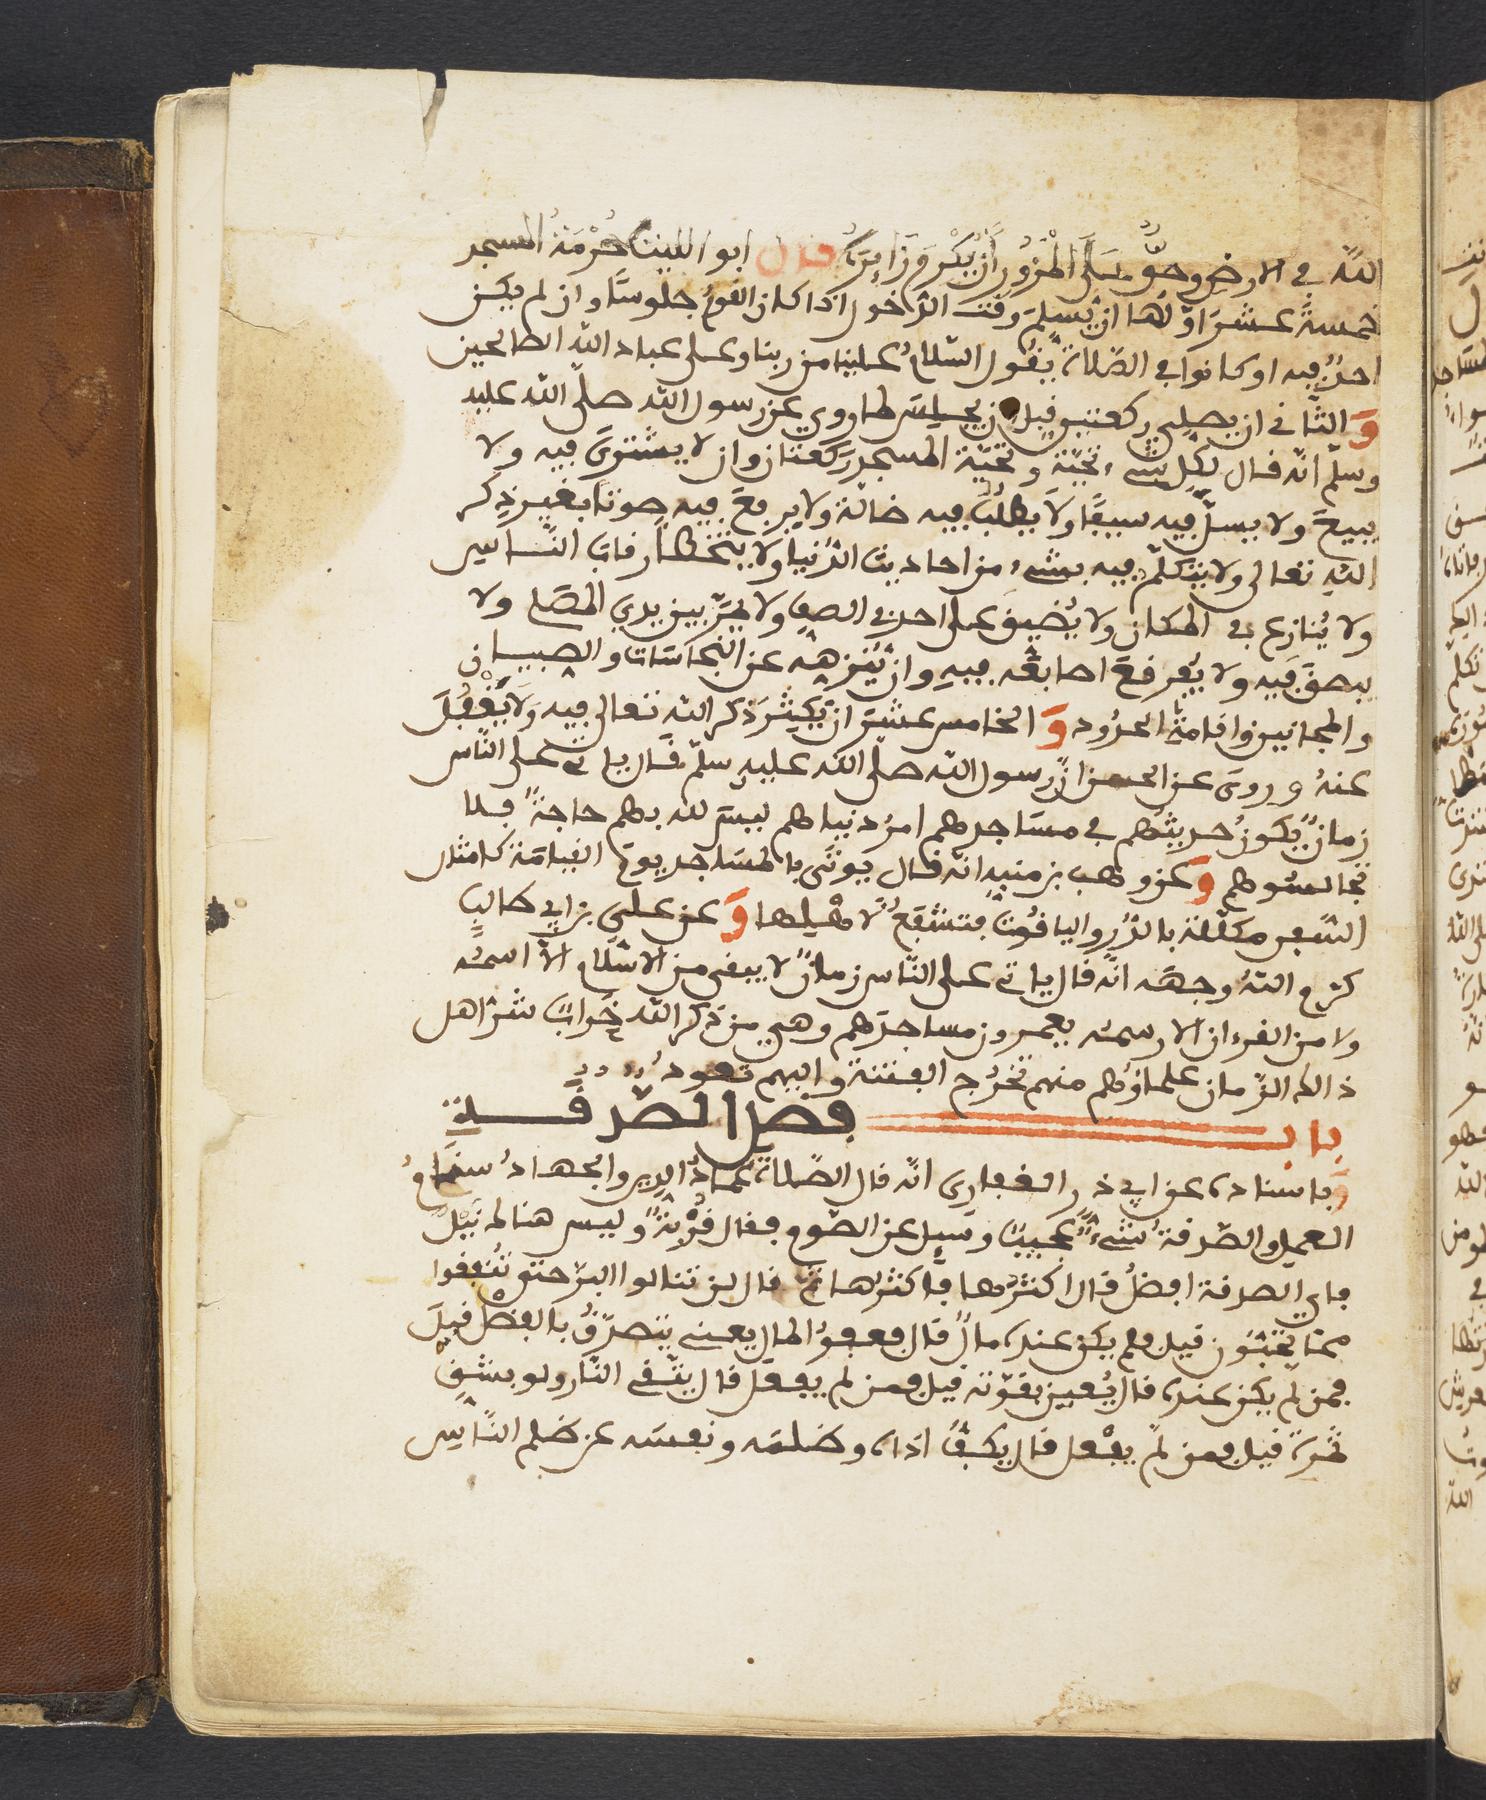 الله في الارض وحقٌّ على المزُورِ أن يُكْرِمَ زَايِرَهُ قال ابو الليث حُرْمَةُ المسجد
خمسةَ عشرَ اوّلها ان يُسلِمَ وقت الدّخول اذا كان القومُ جلوسًا وان لم يكن
احدٌ فيه او كانوا في الصّلاة يقُول السّلامُ علينا من ربنا وعلى عباد الله الصالحين
وَالثّاني ان يصلي ركعتين قبل ان يجلس لما روي عن رسول الله صلّى الله عليه
وسلّم انّه قال لكل شيء تحيّة وتحيّة المسجد ركعتان وان لا يشتري فيه ولا
يبيعَ ولا يسلّ فيه سيفًا ولا يطلُب فيه ضالّة ولا يرفعَ فيه صوتا بغير ذكر
الله تعالى ولا يتكلّم فيه بشيء من احاديث الدّنيا ولا يتخطا رقاب النّاس
ولا يُنازع في المكان ولا يُضيق على احد في الصف ولا يمرّ بين يدي المصَل ولا
يبصق فيه ولا يفرقعَ اصابعَه فيه وان يُنزهه عن النّجاسَات والصبيان
والمجانين واقامة الحدُود وَ الخامس عشر ان يُكثِرَ ذكر الله تعالى فيه ولا يَغْفُلَ
عنهُ وروي عن الحسن انّ رسول الله صلى الله عليه سلّم قال ياتي على النّاس
زمانٌ يكونُ حديثُهم في مسَاجدهم امرُ دنياهم ليسَ لله بهم حاجةً فلا
تجالسُوهم وَعن وهب بن منبه انّه قال يوتَى بالمسَاجد يومَ القيامَة كامثال
السّفن مكلّلة بالدُّر والياقُوت فتشفعُ لاهلِها وَ عن علي بن ابي طالبٍ
كرّم اللهُ وجهَه انّه قال ياتي على النّاس زمانٌ لا يبقى من الاسْلام الاّ اسمُه
ولا من القرءان الا رسمُه يعمرون مساجدَهم وهي من ذكر الله خَرابٌ شرّ اهل
ذالك الزّمان علماؤُهم منهم تخرُج الفتنة واليهم تعودُ
باب فضل الصّدقة
وَباسناده عن ابي ذر الغفاري انّه قال الصّلاة عمادُ الدين والجهادُ سنَامُ
العمل والصّدقةُ شيءٌ عجيبٌ وسيل عن الصّوم فقال قُرْبةٌ وليس هناله نَيْلٌ
فاي الصدقة افضلُ قال اكثرُها فاكثرُها ثمّ قال لن تنالوا البرّ حتى تُنفِقوا
ممّا تحبّون قيل فلم يكن عنده مالٌ قال فعفوُ المال يعني يتصدّقُ بالفضْل قيلَ
فمن لم يكن عنده قال يُعين بقوّته قيل فمن لم يفعل قال يتّقي النّار ولو بشقّ
تمرة قيل فمن لم يفْعل قال يكفُّ اذاه وضلمَه ونفسَه عن ضلم النّاس